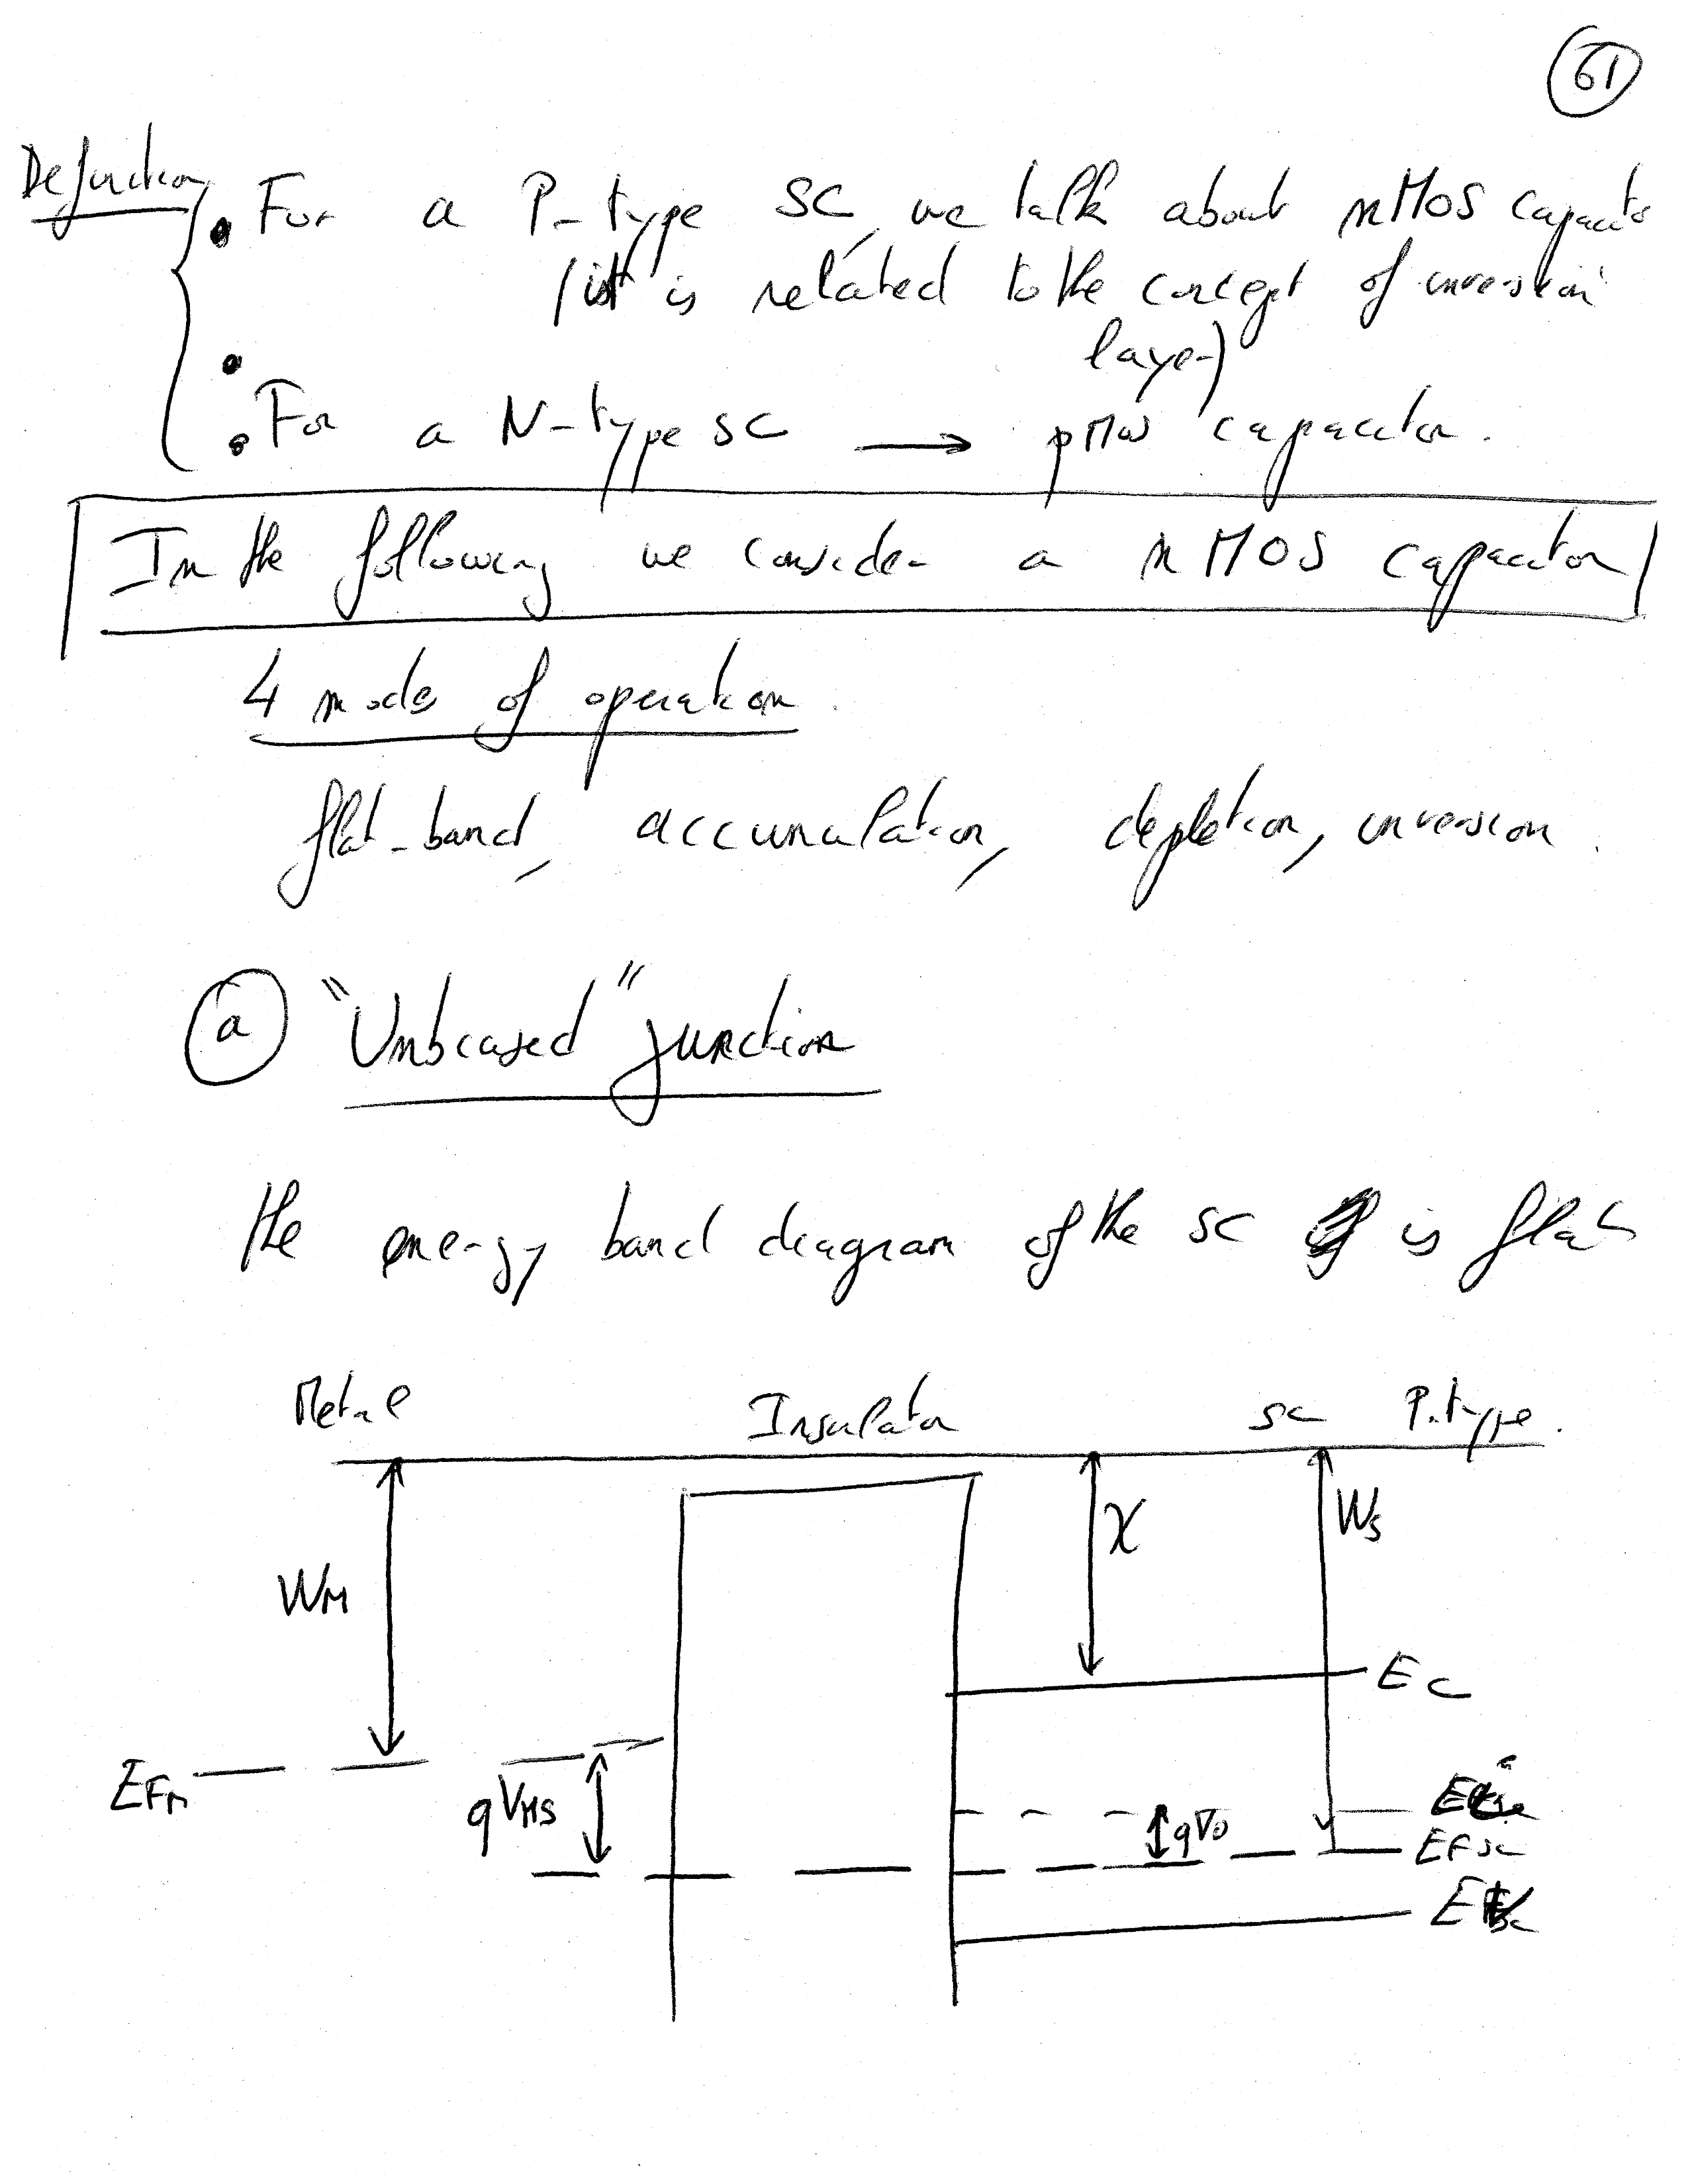 61
Definition
• For a P-type SC, we talk about nMOS capacitor
(it is related to the concept of inversion
layer)
• For a N-type SC → pMOS capacitor.
In the following we consider a nMOS capacitor
4 modes of operation.
flat-band, accumulation, depletion, inversion.
a "Unbiased" junction
the energy band diagram of the SC is flat
Metal Insulator SC P-type.
WM
χ
WS
EC
EFM
qVMS
qV0
Ei
EFSC
EV